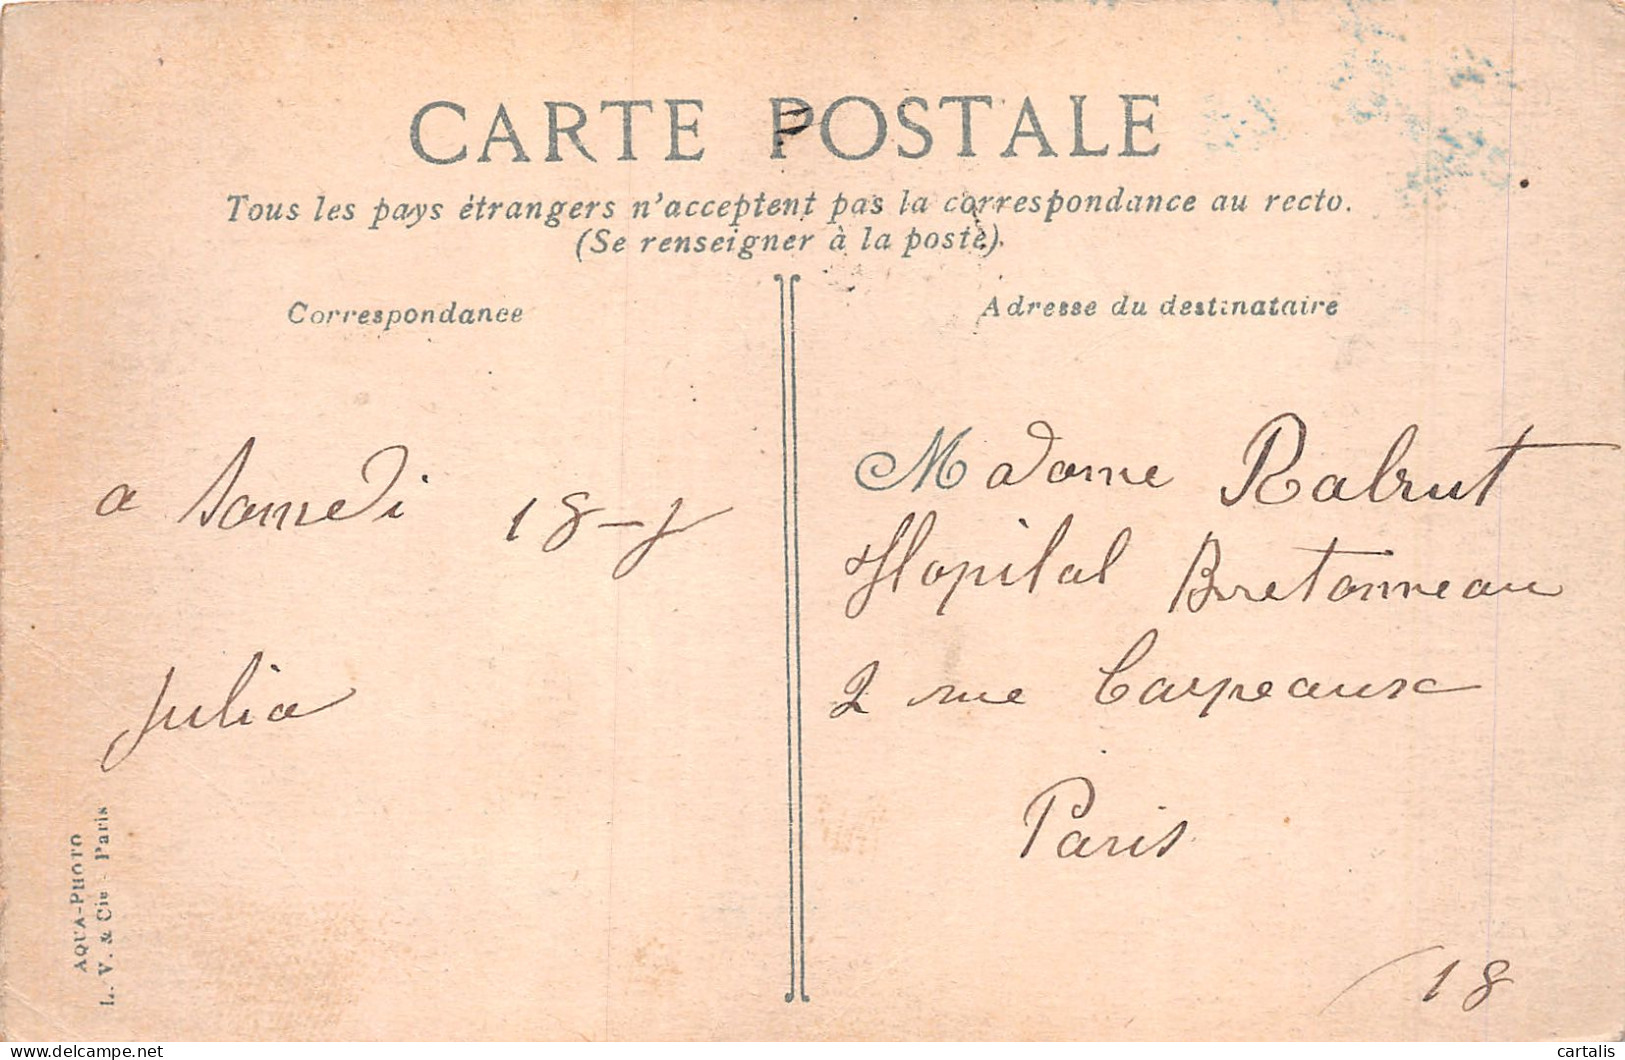 CARTE POSTALE
Tous les pays étrangers n'acceptent pas la correspondance au recto.
(Se renseigner à la poste).
Correspondance
a Samedi 18-7
Julia
AQUA-PHOTO
L. V. & Cie - Paris
Adresse du destinataire
Madame Rabrut
Hopital Bretonneau
2 rue Carpeaux
Paris
18
cartalis
delcampe.net